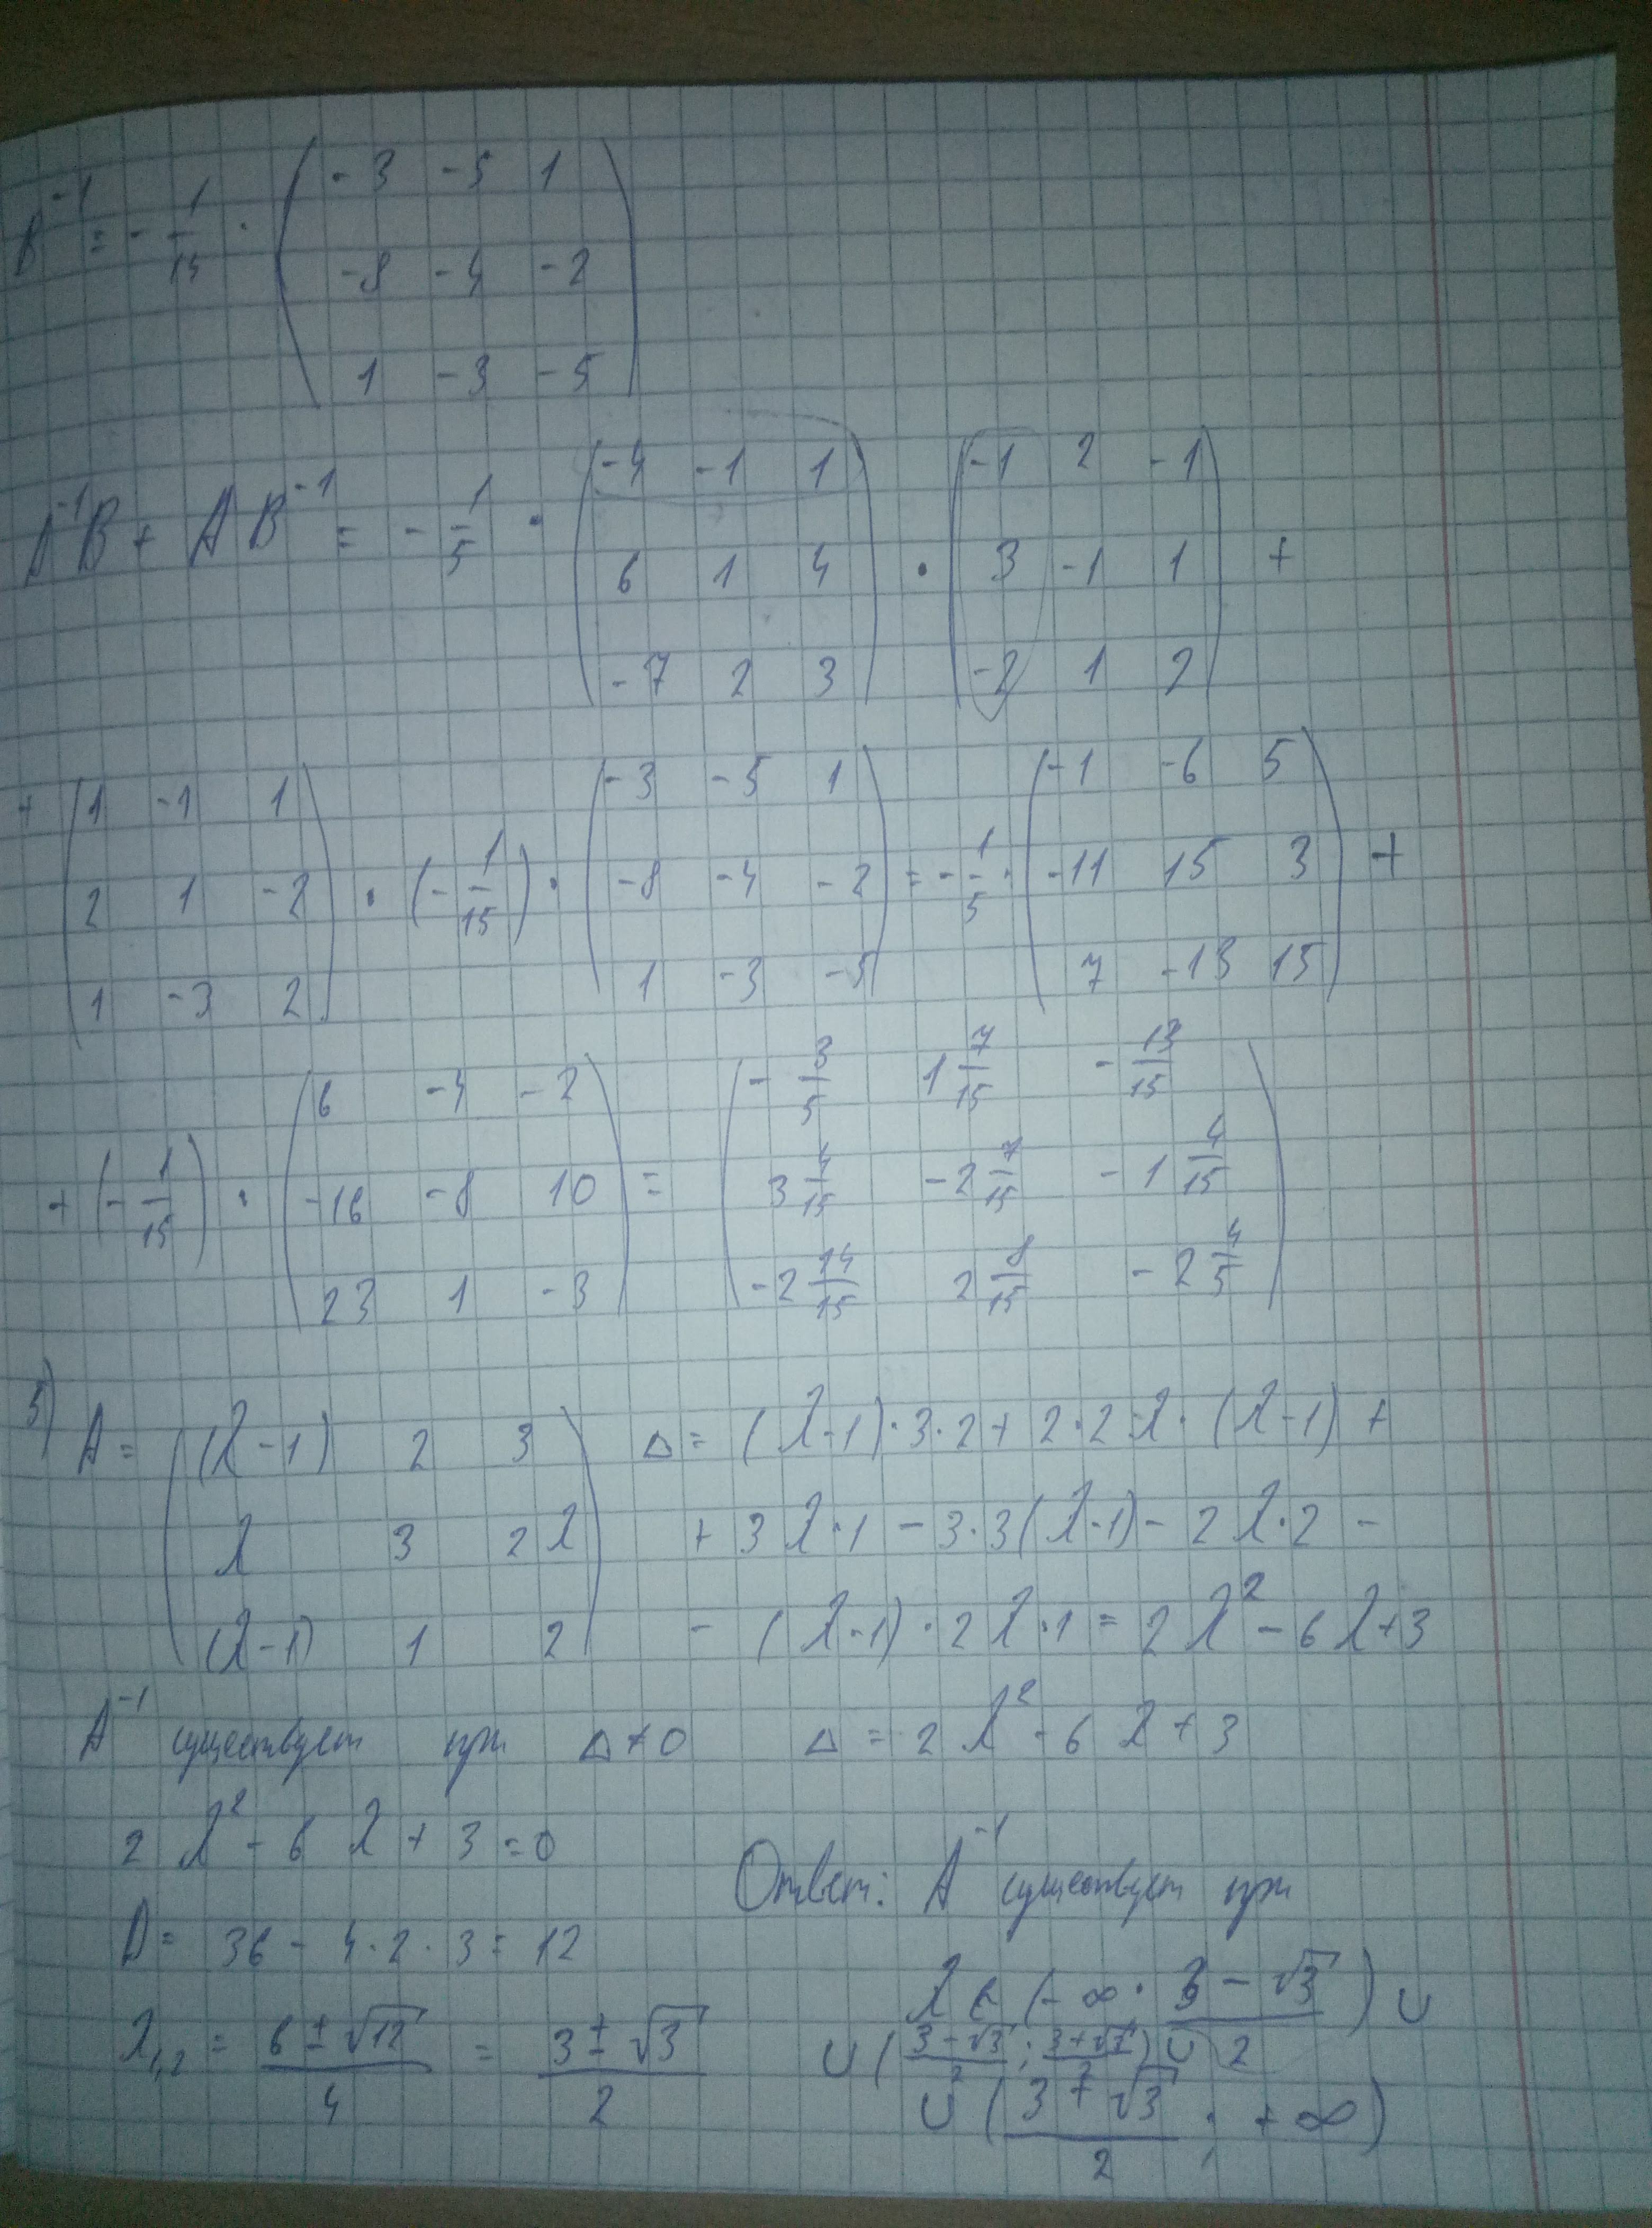 B⁻¹ = - 1/15 · ( -3 -5 1
-8 -4 -2
1 -3 -5 )
A⁻¹B + AB⁻¹ = - 1/5 · ( -4 -1 1
6 1 4
-7 2 3 ) · ( -1 2 -1
3 -1 1
-2 1 2 ) +
+ ( 1 -1 1
2 1 -2
1 -3 2 ) · (- 1/15) · ( -3 -5 1
-8 -4 -2
1 -3 -5 ) = - 1/5 · ( -1 -6 5
-11 15 3
7 -13 15 ) +
+ (- 1/15) · ( 6 -4 -2
-16 -8 10
23 1 -3 ) = ( - 3/5 1 7/15 - 13/15
3 4/15 -2 7/15 -1 4/15
-2 14/15 2 8/15 -2 4/5 )
5) A = ( (λ-1) 2 3
λ 3 2λ
(λ-1) 1 2 )
Δ = (λ-1)·3·2 + 2·2λ·(λ-1) +
+ 3λ·1 - 3·3(λ-1) - 2λ·2 -
- (λ-1)·2λ·1 = 2λ² - 6λ + 3
A⁻¹ существует при Δ ≠ 0 Δ = 2λ² - 6λ + 3
2λ² - 6λ + 3 = 0
D = 36 - 4·2·3 = 12
λ₁,₂ = (6 ± √12)/4 = (3 ± √3)/2
Ответ: A⁻¹ существует при
λ ∈ (-∞; (3 - √3)/2) ∪
∪ ((3 - √3)/2; (3 + √3)/2) ∪
∪ ((3 + √3)/2; +∞)